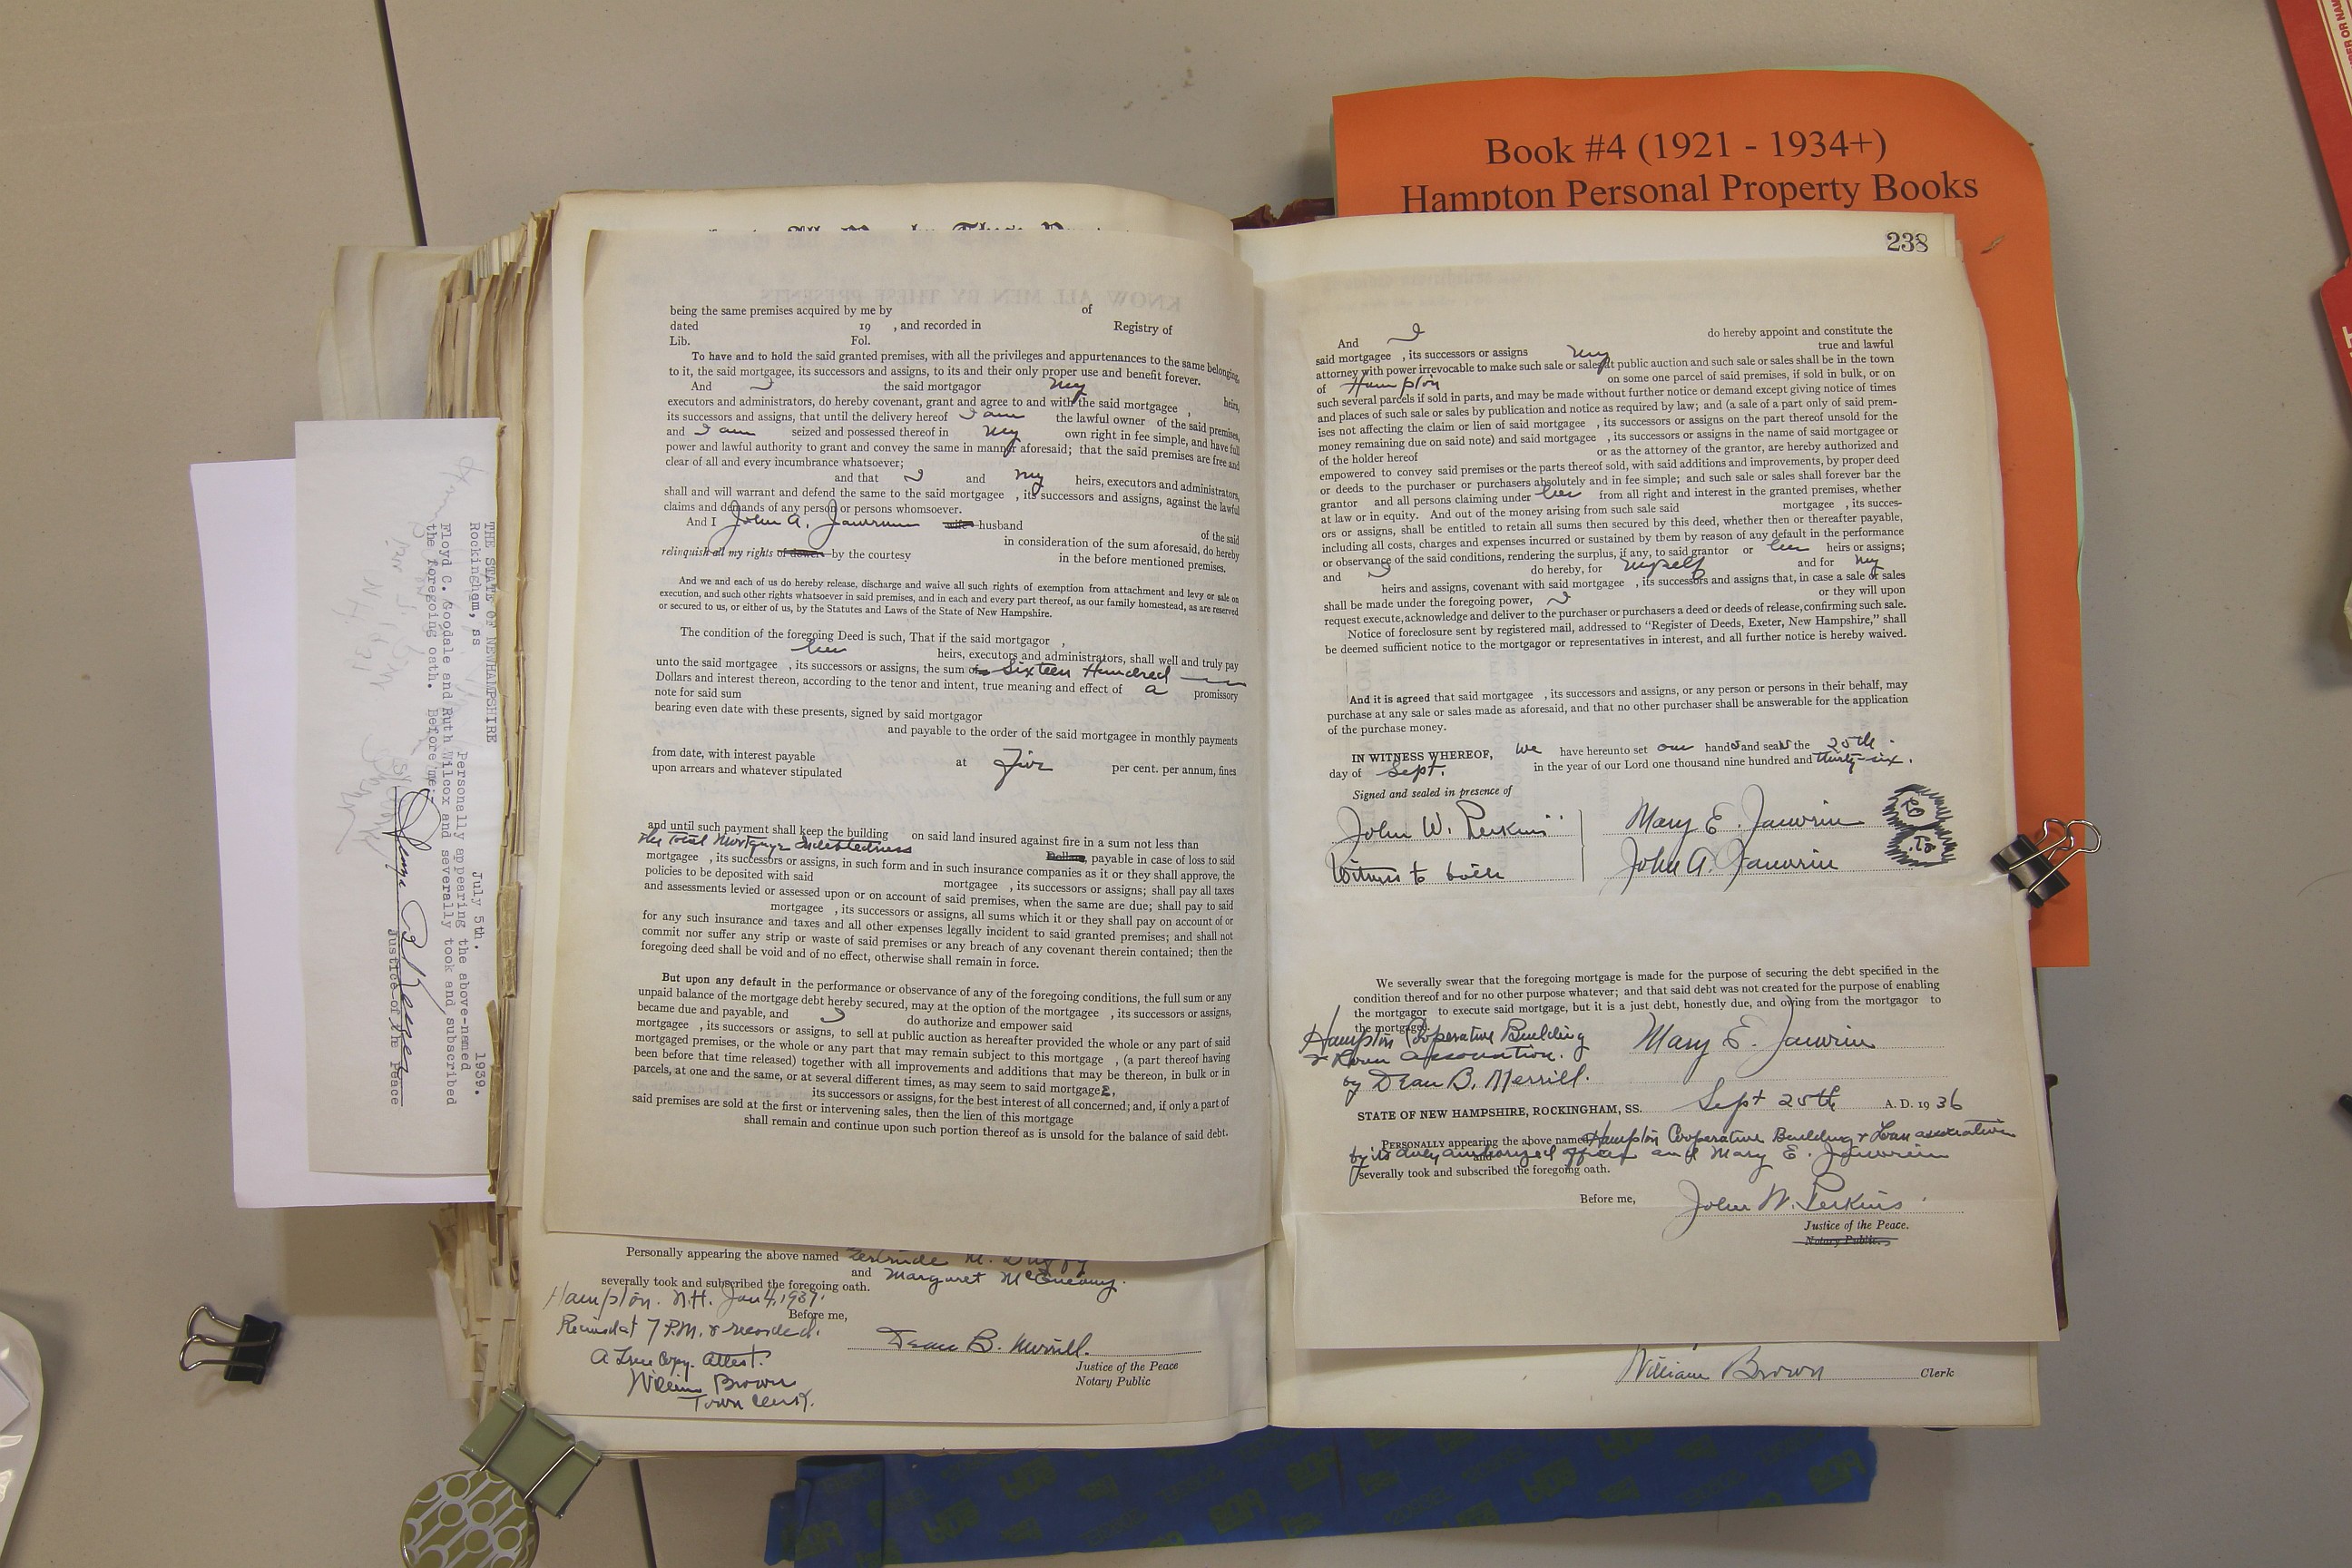 Book #4 (1921 - 1934+)
Hampton Personal Property Books
238
THE STATE OF NEWHAMPSHIRE
Rockingham, ss July 5th. 1939.
Personally appearing the above-named
Floyd C. Goodale and Ruth Wilcox and severally took and subscribed
the foregoing oath. Before me:
Justice of the Peace
KNOW ALL MEN BY THESE PRESENTS
being the same premises acquired by me by of
dated 19 , and recorded in Registry of
Lib. Fol.
To have and to hold the said granted premises, with all the privileges and appurtenances to the same belonging,
to it, the said mortgagee, its successors and assigns, to its and their only proper use and benefit forever.
And I the said mortgagor my heirs,
executors and administrators, do hereby covenant, grant and agree to and with the said mortgagee ,
its successors and assigns, that until the delivery hereof I am the lawful owner of the said premises,
and I am seized and possessed thereof in my own right in fee simple, and have full
power and lawful authority to grant and convey the same in manner aforesaid; that the said premises are free and
clear of all and every incumbrance whatsoever;
and that I and my heirs, executors and administrators,
shall and will warrant and defend the same to the said mortgagee , its successors and assigns, against the lawful
claims and demands of any person or persons whomsoever.
And I John A. Janvrin wife husband of the said
in consideration of the sum aforesaid, do hereby
relinquish all my rights of dower by the courtesy in the before mentioned premises.
And we and each of us do hereby release, discharge and waive all such rights of exemption from attachment and levy or sale on
execution, and such other rights whatsoever in said premises, and in each and every part thereof, as our family homestead, as are reserved
or secured to us, or either of us, by the Statutes and Laws of the State of New Hampshire.
The condition of the foregoing Deed is such, That if the said mortgagor ,
her heirs, executors and administrators, shall well and truly pay
unto the said mortgagee , its successors or assigns, the sum of Sixteen Hundred
Dollars and interest thereon, according to the tenor and intent, true meaning and effect of a promissory
note for said sum
bearing even date with these presents, signed by said mortgagor
and payable to the order of the said mortgagee in monthly payments
from date, with interest payable at Five per cent. per annum, fines
upon arrears and whatever stipulated
and until such payment shall keep the building on said land insured against fire in a sum not less than
the total Mortgage Indebtedness Dollars, payable in case of loss to said
mortgagee , its successors or assigns, in such form and in such insurance companies as it or they shall approve, the
policies to be deposited with said mortgagee , its successors or assigns; shall pay all taxes
and assessments levied or assessed upon or on account of said premises, when the same are due; shall pay to said
mortgagee , its successors or assigns, all sums which it or they shall pay on account of or
for any such insurance and taxes and all other expenses legally incident to said granted premises; and shall not
commit nor suffer any strip or waste of said premises or any breach of any covenant therein contained; then the
foregoing deed shall be void and of no effect, otherwise shall remain in force.
But upon any default in the performance or observance of any of the foregoing conditions, the full sum or any
unpaid balance of the mortgage debt hereby secured, may at the option of the mortgagee , its successors or assigns,
became due and payable, and I do authorize and empower said
mortgagee , its successors or assigns, to sell at public auction as hereafter provided the whole or any part of said
mortgaged premises, or the whole or any part that may remain subject to this mortgage , (a part thereof having
been before that time released) together with all improvements and additions that may be thereon, in bulk or in
parcels, at one and the same, or at several different times, as may seem to said mortgagee,
its successors or assigns, for the best interest of all concerned; and, if only a part of
said premises are sold at the first or intervening sales, then the lien of this mortgage
shall remain and continue upon such portion thereof as is unsold for the balance of said debt.
Personally appearing the above named Gertrude M. Duffy
and Margaret McEneany.
severally took and subscribed the foregoing oath.
Hampton. N.H. Jan 4, 1937.
Before me,
Received at 7 P.M. & recorded.
Dean B. Merrill.
A True Copy. Attest.
Justice of the Peace
William Brown
Notary Public
Town Clerk.
And I do hereby appoint and constitute the
said mortgagee , its successors or assigns my true and lawful
attorney with power irrevocable to make such sale or sales at public auction and such sale or sales shall be in the town
of Hampton on some one parcel of said premises, if sold in bulk, or on
such several parcels if sold in parts, and may be made without further notice or demand except giving notice of times
and places of such sale or sales by publication and notice as required by law; and (a sale of a part only of said prem-
ises not affecting the claim or lien of said mortgagee , its successors or assigns on the part thereof unsold for the
money remaining due on said note) and said mortgagee , its successors or assigns in the name of said mortgagee or
of the holder hereof or as the attorney of the grantor, are hereby authorized and
empowered to convey said premises or the parts thereof sold, with said additions and improvements, by proper deed
or deeds to the purchaser or purchasers absolutely and in fee simple; and such sale or sales shall forever bar the
grantor and all persons claiming under her from all right and interest in the granted premises, whether
at law or in equity. And out of the money arising from such sale said mortgagee , its succes-
ors or assigns, shall be entitled to retain all sums then secured by this deed, whether then or thereafter payable,
including all costs, charges and expenses incurred or sustained by them by reason of any default in the performance
or observance of the said conditions, rendering the surplus, if any, to said grantor or her heirs or assigns;
and I do hereby, for myself and for my
heirs and assigns, covenant with said mortgagee , its successors and assigns that, in case a sale or sales
shall be made under the foregoing power, I or they will upon
request execute, acknowledge and deliver to the purchaser or purchasers a deed or deeds of release, confirming such sale.
Notice of foreclosure sent by registered mail, addressed to "Register of Deeds, Exeter, New Hampshire," shall
be deemed sufficient notice to the mortgagor or representatives in interest, and all further notice is hereby waived.
And it is agreed that said mortgagee , its successors and assigns, or any person or persons in their behalf, may
purchase at any sale or sales made as aforesaid, and that no other purchaser shall be answerable for the application
of the purchase money.
IN WITNESS WHEREOF, We have hereunto set our hands and seals the 25th
day of Sept. in the year of our Lord one thousand nine hundred and thirty-six.
Signed and sealed in presence of
John W. Perkins Mary E. Janvrin
Witness to both John A. Janvrin
We severally swear that the foregoing mortgage is made for the purpose of securing the debt specified in the
condition thereof and for no other purpose whatever; and that said debt was not created for the purpose of enabling
the mortgagor to execute said mortgage, but it is a just debt, honestly due, and owing from the mortgagor to
the mortgagee.
Hampton Cooperative Building Mary E. Janvrin
& Loan Association.
by Dean B. Merrill.
STATE OF NEW HAMPSHIRE, ROCKINGHAM, SS. Sept 25th A. D. 19 36
PERSONALLY appearing the above named Hampton Cooperative Building & Loan association
by its duly authorized officer and Mary E. Janvrin
and
severally took and subscribed the foregoing oath.
Before me, John W. Perkins
Justice of the Peace.
Notary Public.
William Brown Clerk